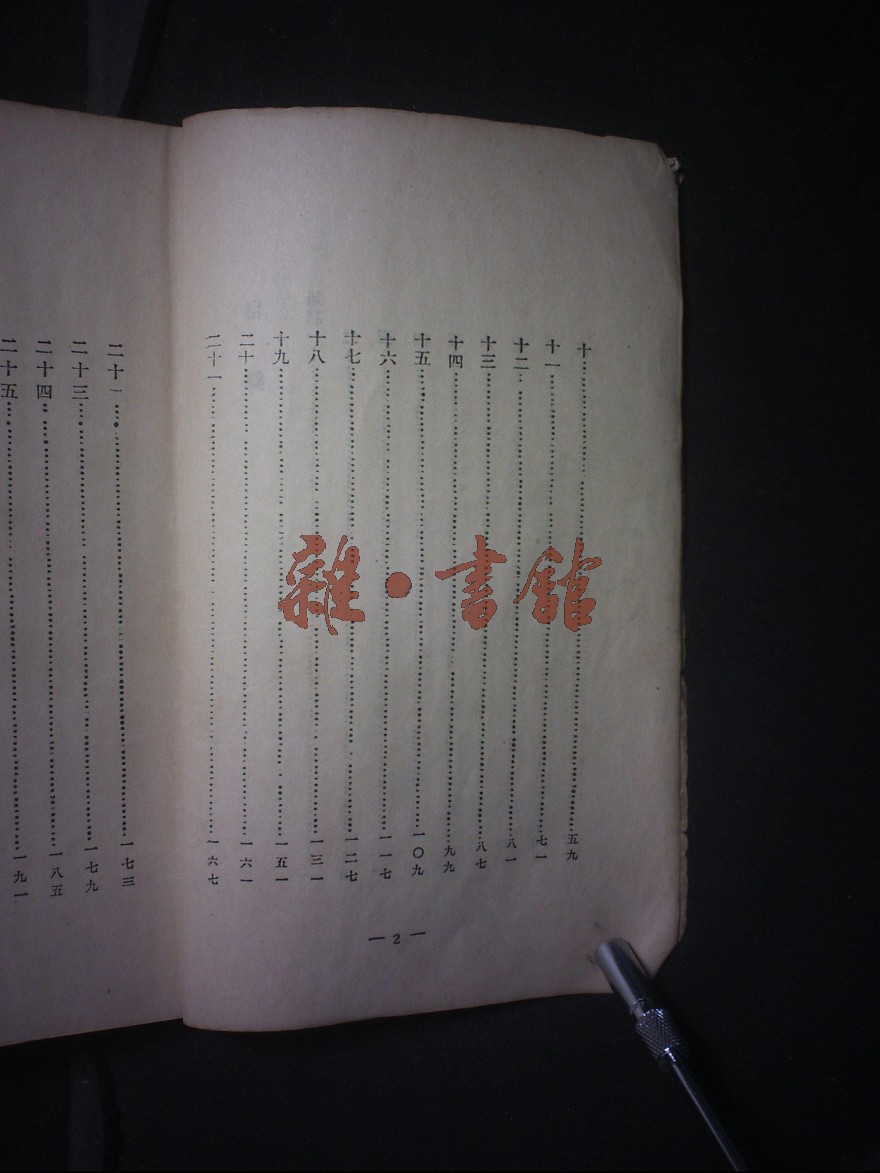 十……五九
十一……七一
十二……八一
十三……八七
十四……九九
十五……一〇九
十六……一一七
十七……一二七
十八……一三一
十九……一五一
二十……一六一
二十一……一六七
— 2 —
二十二……一七三
二十三……一七九
二十四……一八五
二十五……一九一
雜·書館